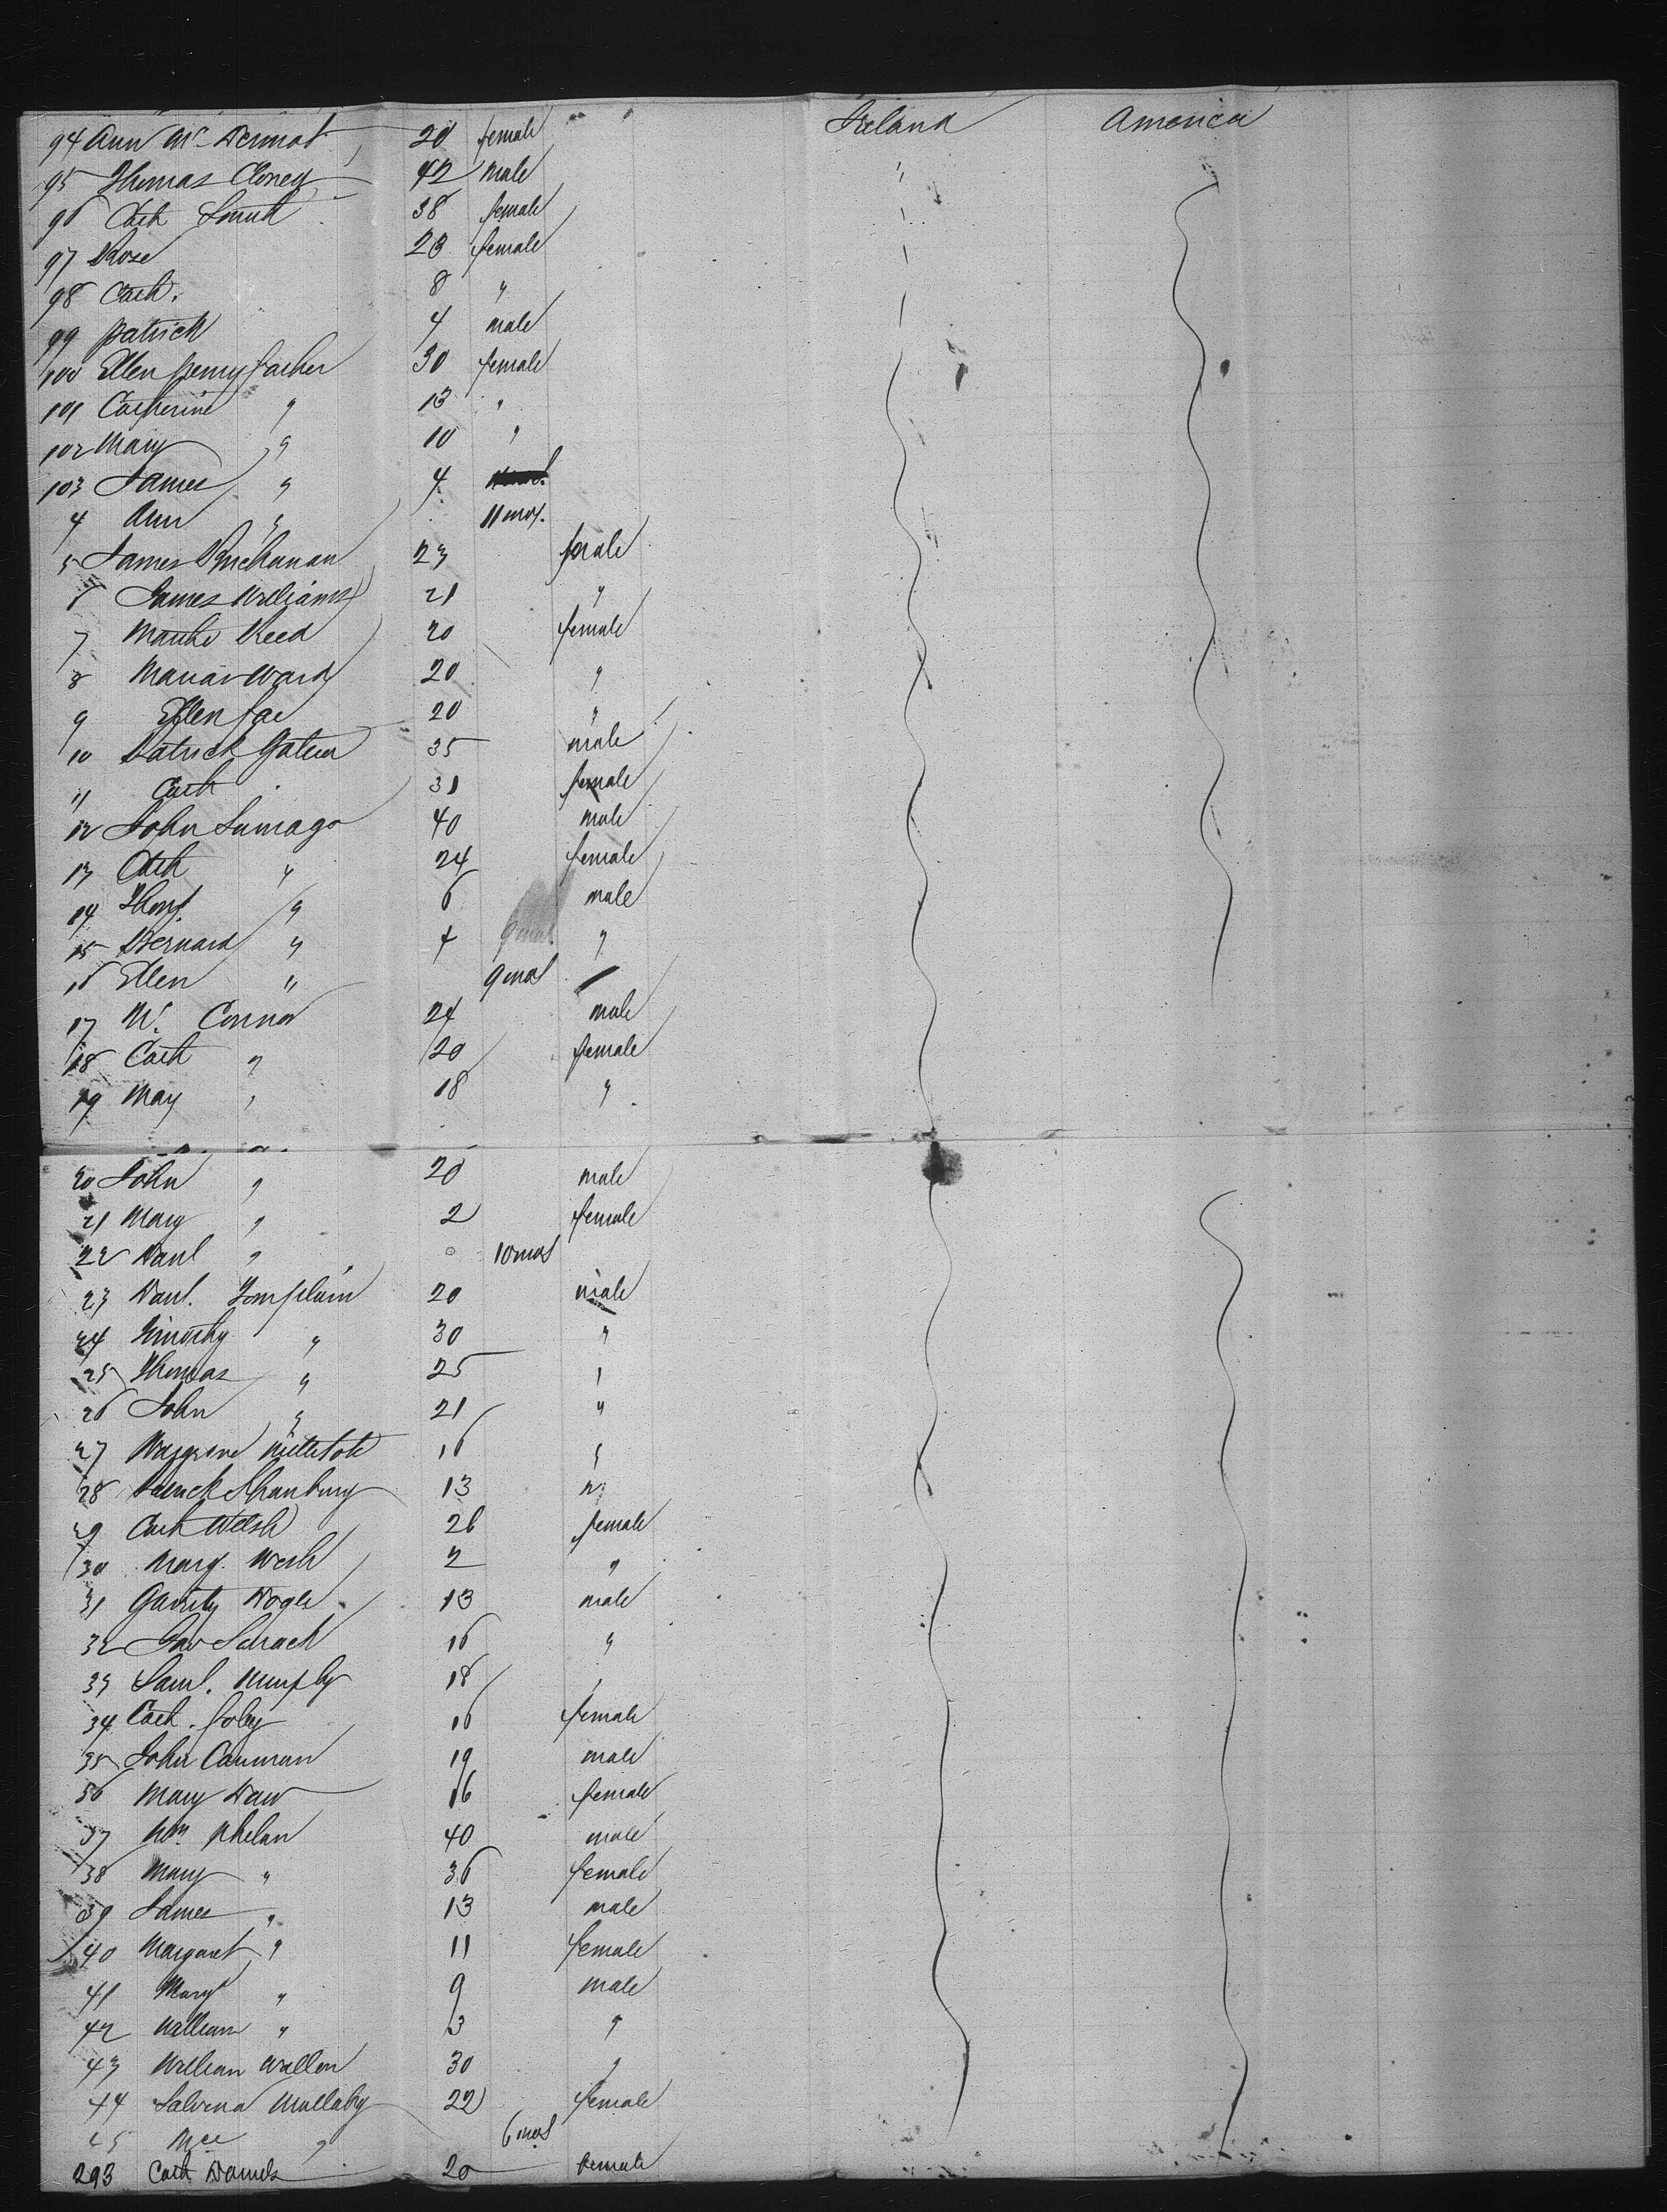 94 Ann Mc Dermot 20 female Ireland America
95 Thomas Cloney 42 male "
96 Cath Smith 38 female "
97 Rose 28 female "
98 Cath. 8 "
99 Patrick 4 male
100 Ellen Pennyfather 30 female
101 Catherine " 13 "
102 Mary " 10 "
103 James " 4
4 Ann " 11 mos.
5 James Buchanan 23 male
6 James Williams 21 "
7 Reed 20 female
8 Ward 20 "
9 Ellen 20 "
10 Patrick 35 male
11 Cath 31 female
12 John 40 male
13 Cath " 24 female
14 Thos. " 6 male
15 Bernard " 4 "
16 Ellen " 9 mos
17 Connor 24 male
18 Cath " 20 female
19 May " 18 "
20 John " 20 male
21 Mary " 2 female
22 Danl " 10 mos
23 Danl. 20 male
24 Timothy " 30 "
25 Thomas " 25 "
26 John " 21 "
27 16 "
28 13 "
29 Cath Welsh 26 female
30 Marg. Welsh 2 "
31 13 male
32 16 "
33 Saml. Murphy 18 "
34 Cath. Foley 16 female
35 John 19 male
36 Mary 16 female
37 Wm Phelan 40 male
38 Mary " 36 female
39 James " 13 male
40 Margaret " 11 female
41 Mary " 9 male
42 William " 3 "
43 William 30 "
44 22 female
45 " 6 mos
293 Cath Daniels 20 female